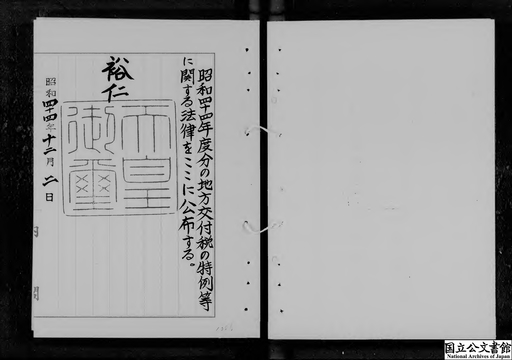 昭和四十四年度分の地方交付税の特例等
に関する法律をここに公布する。
裕仁
天皇
御璽
昭和四十四年十二月二日
国立公文書館
National Archives of Japan